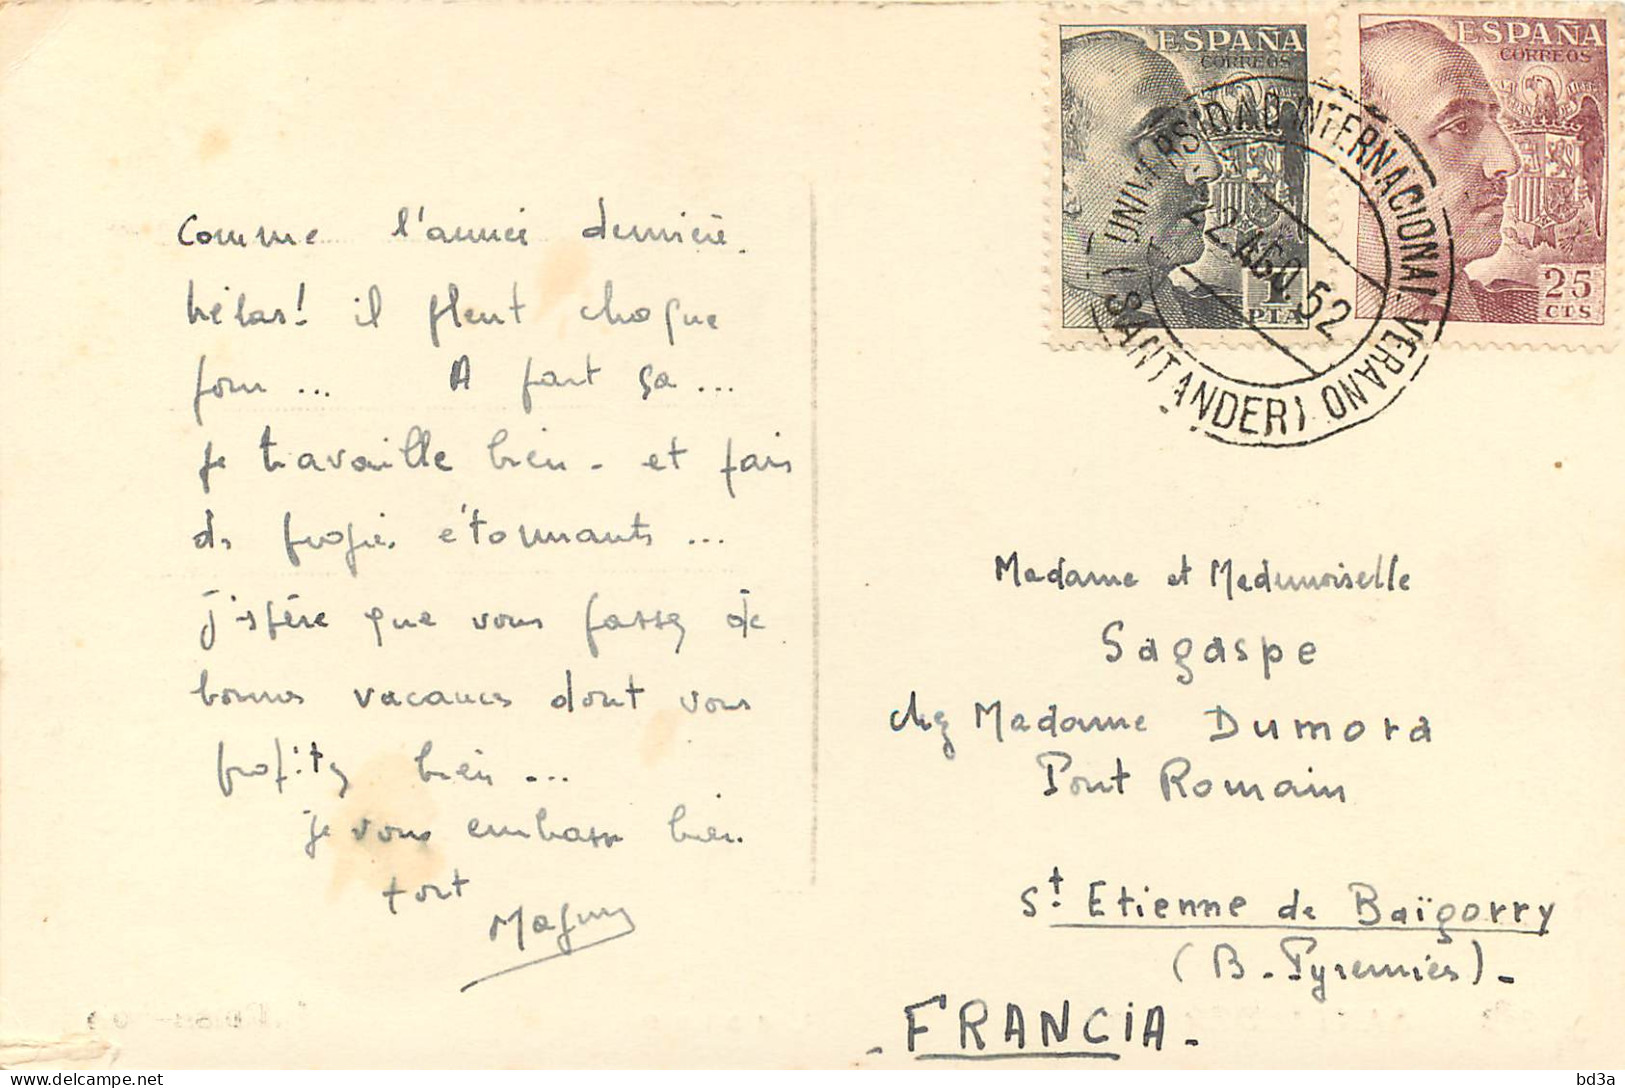 Comme l'année dernière.
hélas! il pleut chaque
jour ... A part ça ...
je travaille bien - et fais
des progrès étonnants ...
j'espère que vous passez de
bonnes vacances dont vous
profitez bien ...
je vous embrasse bien
fort
ESPAÑA
CORREOS
1
PTA
ESPAÑA
CORREOS
25
CTS
UNIVERSIDAD INTERNACIONAL VERANO
(SANTANDER)
22.AGO.52
Madame et Mademoiselle
Sagaspe
chez Madame Dumora
Pont Romain
St. Etienne de Baïgorry
(B. Pyrenées)-
- FRANCIA -
bd3a